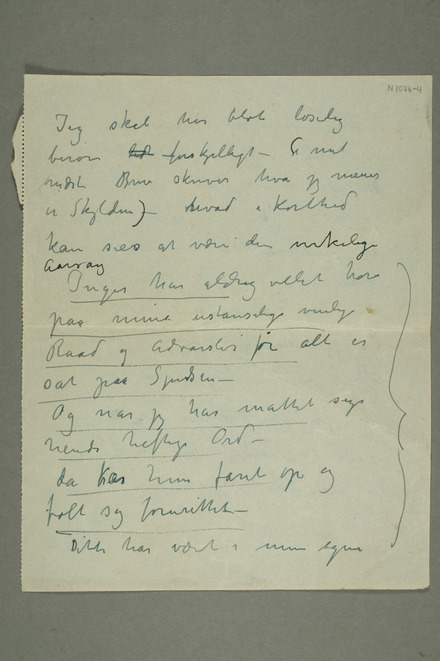 N 1036-4
Jeg skal her blot løselig
berøre forskjelligt –
Brev skriver hva jeg mener
er Skylden) – hvad i Korthed
kan sies at være den virkelige
Aarsag
Inger har aldrig villet høre
paa mine ustanselige venlige
Raad og Advarsler før alt er
sat paa Spidsen –
Og naar jeg har maattet sige
hende heftige Ord –
da har hun faret op og
følt sig forurettet –
Dette har vært i min egen